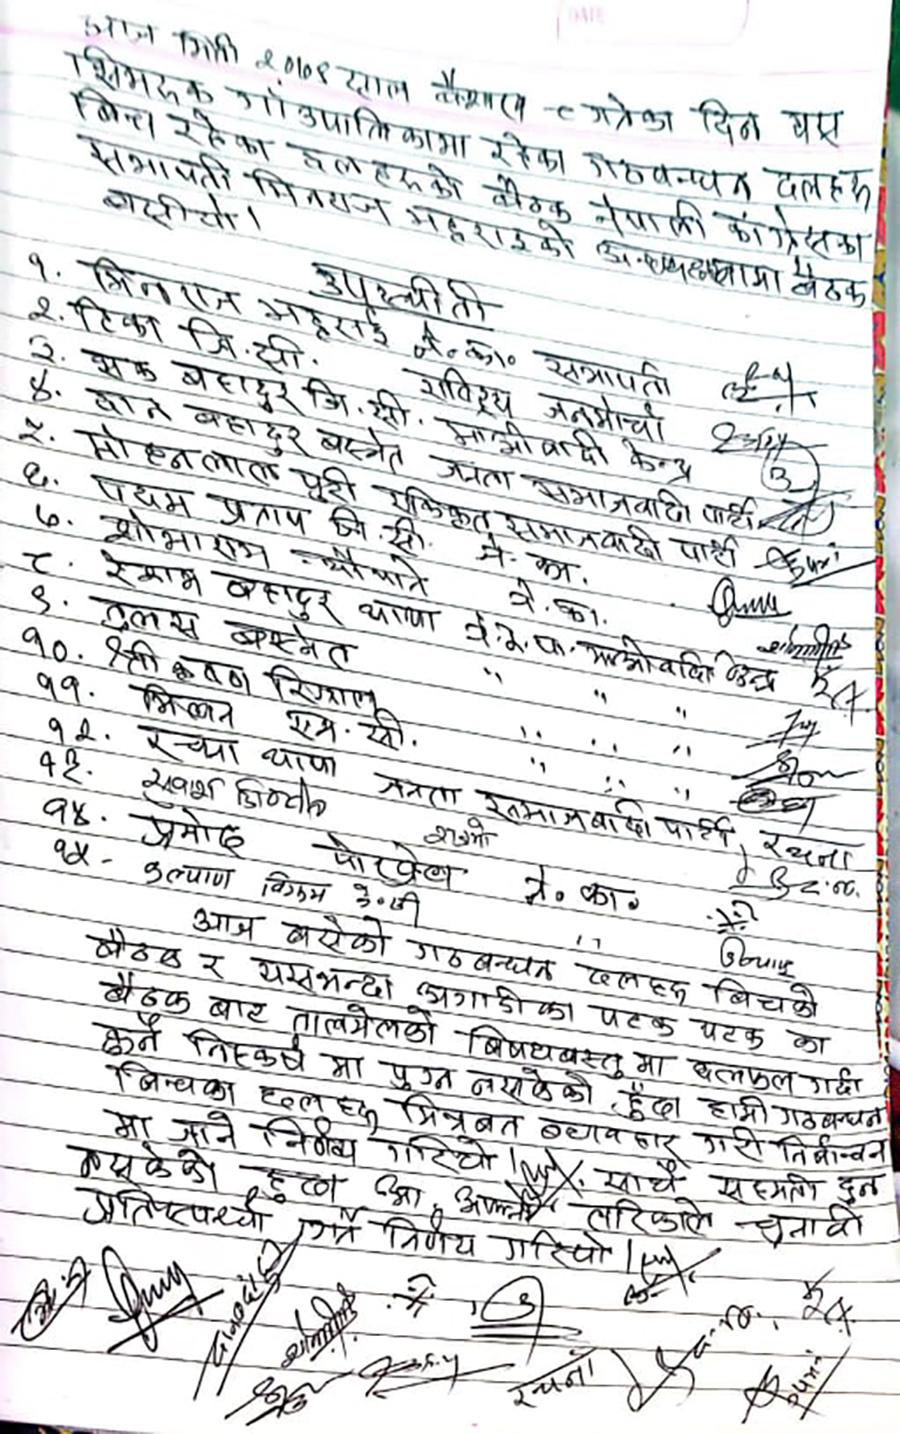 आज मिति २०७९ साल बैशाख ९ गतेका दिन यस
त्रिभदक गाँउपालिकामा रहेका गठबन्धन दलहरु
बिच रहेका दलहरुको बैठक नेपाली कांग्रेसका
सभापती भिनराज भट्टराईको अध्यक्षतामा बैठक
बसीयो।
उपस्थीती
१. भिनराज भट्टराई ने.का. सभापती
२. टिका जि.सी. राष्ट्रिय जनमोर्चा
३. भक्त बहादुर जि.सी. माओवादी केन्द्र
४. बहादुर बस्नेत जनता समाजवादी पार्टी
५. मोहनलाल पूरी एकिकृत समाजवादी पार्टी
६. प्रथम प्रताप जि.सी. ने.का.
७. शोभाराम न्यौपाने ने.का.
८. रेशम बहादुर थापा ने.क.पा. माओवादि केन्द्र
९. तुलस बस्नेत " " "
१०. श्री कृष्ण रिजाल " " "
११. मिलन एम.सी. " " "
१२. रचना थापा जनता समाजवादी पार्टी रचना
१३.
१४. प्रमोद पोख्रेल ने.का.
१५. कल्याण विक्रम के.सी "
आज बसेको गठबन्धन दलहरु बिचको
बैठक र यसभन्दा अगाडीका पटक पटक का
बैठक बाट तालमेलको बिषयबस्तुमा छलफल गर्दा
कुनै निष्कर्ष मा पुग्न नसकेको हुँदा हामी गठबन्धन
बिचका दलहरु मित्रबत ब्यावहार गरी निर्वाचन
मा जाने निर्णय गरियो। साथै सहमती हुन
नसकेको हुदा आ-आफ्नै तरिकाले चुनावी
प्रतिष्पर्धा गर्ने निर्णय गरियो।
रचना